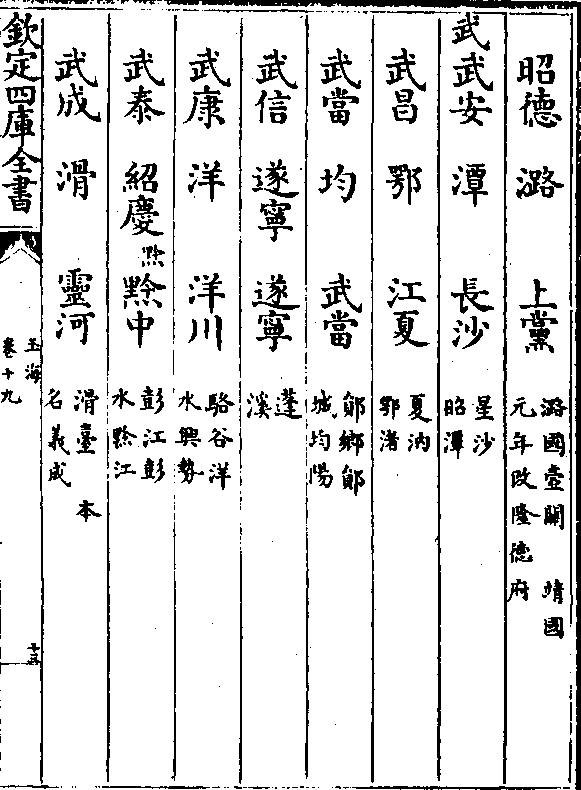 昭德　潞　上黨　潞國壺關　靖國元年改隆德府
武武安　潭　長沙　星沙昭潭
武昌　鄂　江夏　夏汭鄂渚
武當　均　武當　鄖鄉鄖城均陽
武信　遂寧　遂寧　蓬溪
武康　洋　洋川　駱谷洋水興勢
武泰　紹慶黔　黔中　彭江彭水黔江
武成　滑　靈河　滑臺　本名義成
欽定四庫全書
玉海
卷十九